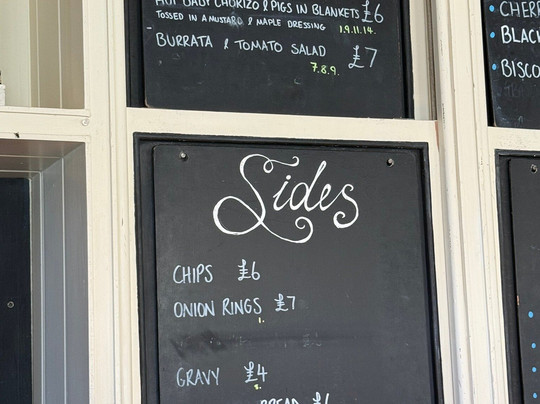 BABY CHORIZO & PIGS IN BLANKETS £6
TOSSED IN A MUSTARD & MAPLE DRESSING 1.9.11.14.
BURRATA & TOMATO SALAD £7
7.8.9.
Sides
CHIPS £6
ONION RINGS £7
1.
GRAVY £4
1.
BREAD
CHERR
BLACK
BISCO